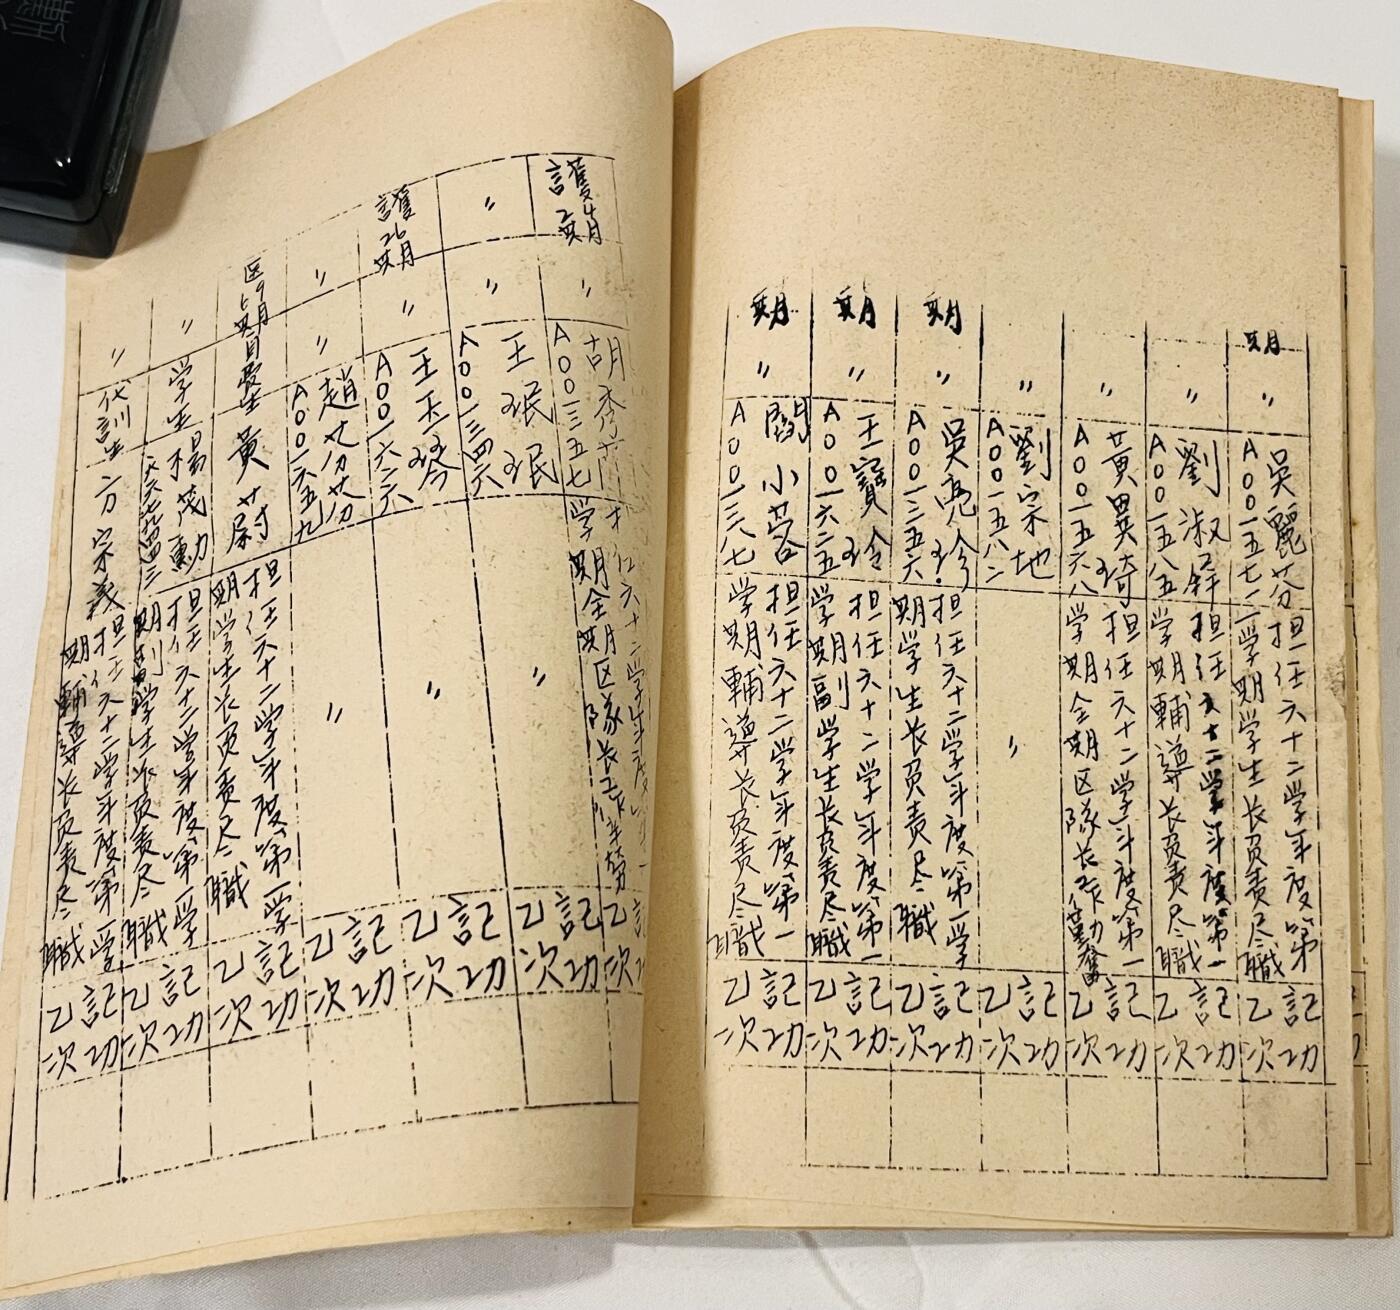 期
〃
吳麗芬
A〇〇一五七二
担任六十二学年度第
一学期学生长负责尽職
記功
乙次
〃
劉淑
A〇〇一五八五
担任六十二学年度第一
学期輔導长负责尽職
記功
乙次
〃
黃異琦
A〇〇一五六八
担任六十二学年度第一
学期全期区隊长工作勤奮
記功
乙次
〃
劉宗地
A〇〇一五八二
〃
記功
乙次
期
〃
吳亮玲
A〇〇一三五六
担任六十二学年度第一学
期学生长负责尽職
記功
乙次
期
〃
王寶玲
A〇〇一六二五
担任六十二学年度第一
学期副学生长负责尽職
記功
乙次
期
〃
關小蓉
A〇〇一三八七
担任六十二学年度第一
学期輔導长负责尽職
記功
乙次
護4月
2期
〃
胡秀
A〇〇一三五七
任六十二学年度
学期全期区隊长工作
記
乙次
〃
〃
王珉珉
A〇〇一三四六
〃
記功
乙次
護
26期
〃
王玉琴
A〇〇一六二六
記功
乙次
〃
〃
趙芬芬
A〇〇一六五九
〃
記功
乙次
区59期
自費生
黃蔚
担任六十二学年度第一学
期学生长负责尽職
記功
乙次
〃
学生
楊茂勳
担任六十二学年度第一学
期副学生长负责尽職
記功
乙次
〃
代訓生
方宗義
担任六十二学年度第一学
期輔導长负责尽職
記功
乙次